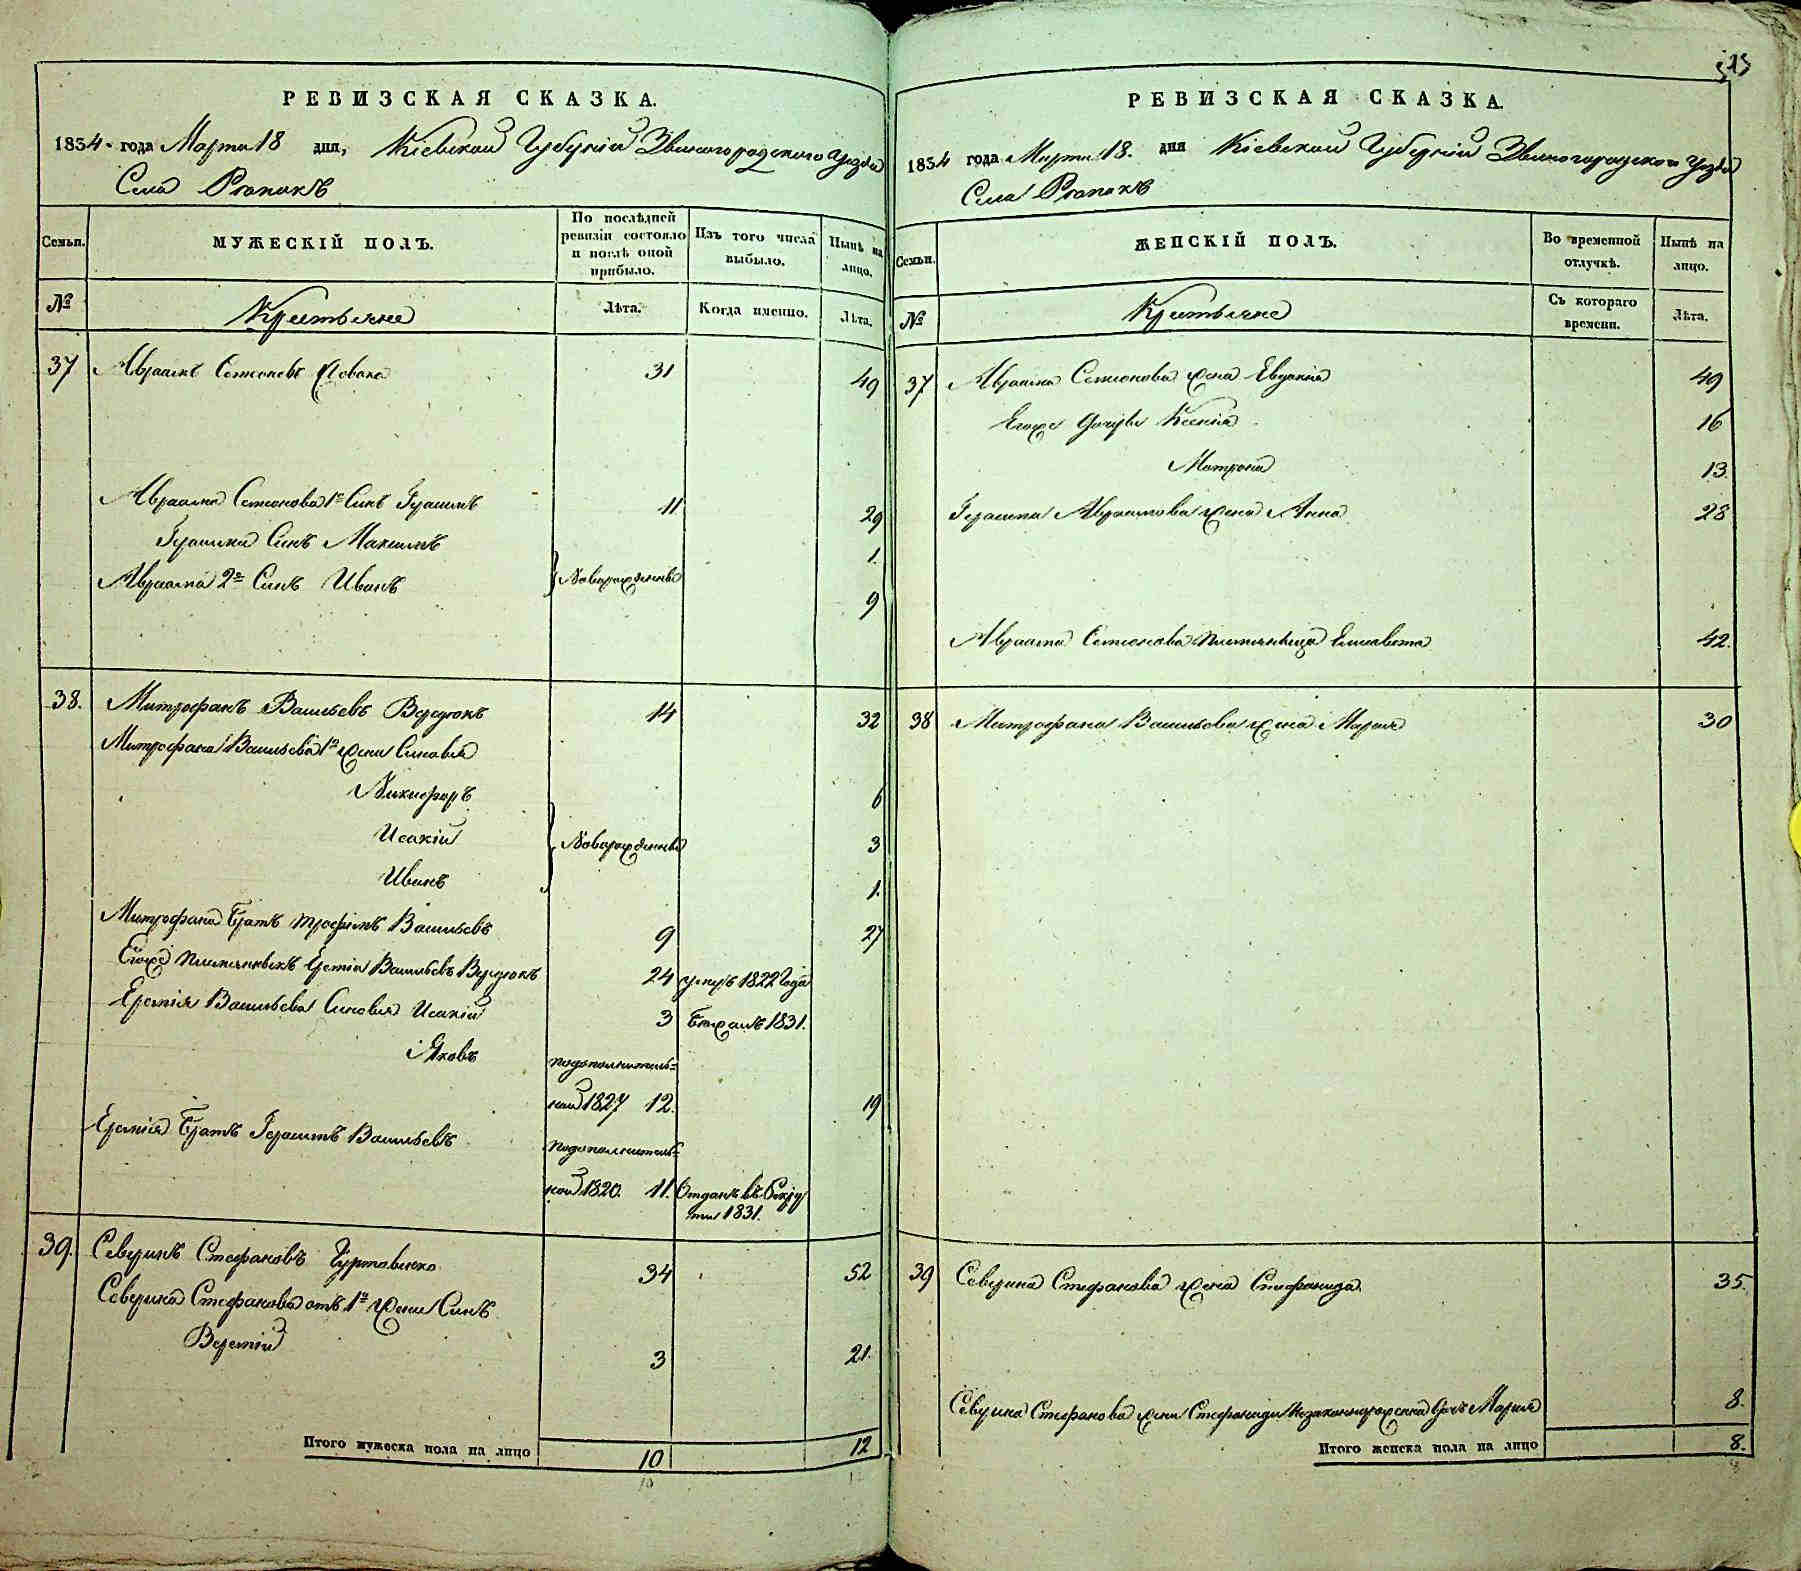 РЕВИЗСКАЯ СКАЗКА.
1854 года Марта 18 дня, Кіевской Губерніи Звенигородского Уезда
Села
Семьи.
МУЖЕСКІЙ ПОЛЪ.
По послѣдней ревизіи состояло и послѣ оной прибыло.
Изъ того числа выбыло.
Нынѣ на лицо.
№
Крестьяне
Лѣта.
Когда именно.
Лѣта.
37 Авраамъ Семеновъ 31 49
Авраама Семенова 1й Синъ Герасимъ 11 29
Герасима Синъ Максимъ 1.
Авраама 2й Синъ Иванъ Новорожденны 9
38. Митрофанъ Васильевъ Вередюкъ 14 32
Митрофана Васильева 1й жени Синовья
Никифоръ 6
Исакій Новорожденны 3
Иванъ 1.
Митрофана Братъ Трофимъ Васильевъ 9 27
Егоже племянникъ Еремія Васильевъ Вередюкъ 24 умеръ 1822 Года
Еремія Васильева Синовья Исакій 3 Бежалъ 1831.
Яковъ подополнитель=
ной 1827 12. 19
Еремія Братъ Герасимъ Васильевъ подополнитель=
ной 1820. 11. Отданъ въ Рекру
ти 1831.
39. Северинъ Стефановъ 34 52
Северина Стефанова отъ 1й жени Синъ
Веремій 3 21.
Итого мужеска пола на лицо 10 12
РЕВИЗСКАЯ СКАЗКА.
1854 года Марта 18. дня Кіевской Губерніи Звенигородского Уезда
Села
Семьи.
ЖЕНСКІЙ ПОЛЪ.
Во временной отлучкѣ.
Нынѣ на лицо.
№
Крестьяне
Съ котораго времени.
Лѣта.
37 Авраама Семенова жена Евдокія 49
Егоже дочери Ксенія 16
Матрона 13.
Герасима Авраамова жена Анна 28
Авраама Семенова племянница Елисавета 42.
38 Митрофана Васильева жена Марія 30
39 Северина Стефанова жена Стефанида 35.
Северина Стефанова жени Стефаниди незаконнорожденна дочь Марія 8.
Итого женска пола на лицо 8.